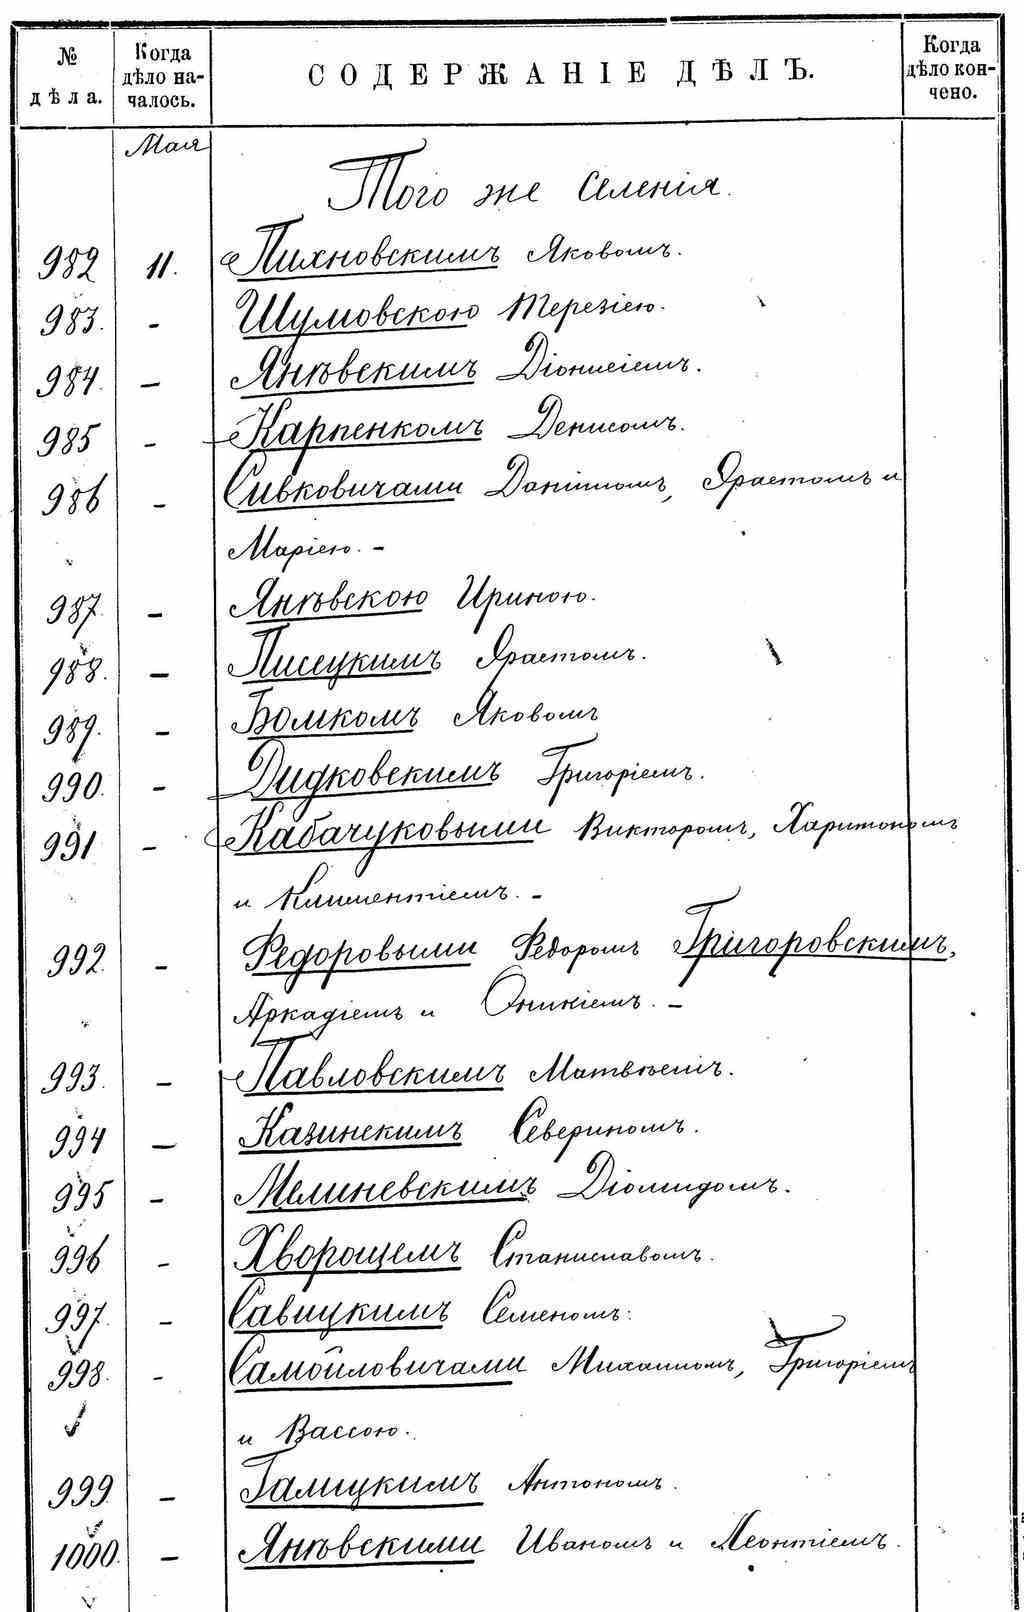 № дѣла. Когда дѣло началось. СОДЕРЖАНІЕ ДѢЛЪ. Когда дѣло кончено.
Мая
Того же селенія.
982 11. Пихновскимъ Яковомъ.
983. - Шумовскою Терезіею.
984. - Янѣвскимъ Діонисіемъ.
985 - Карпенкомъ Денисомъ.
986 - Сивковичами Даніиломъ, Ярастомъ и
Маріею. -
987. - Янѣвскою Ириною.
988. - Писецкимъ Ярастомъ.
989. - Бомкомъ Яковомъ
990. - Дидковскимъ Григоріемъ.
991 - Кабачуковыми Викторомъ, Харитономъ
и Климентіемъ. -
992. - Федоровыми Федоромъ Григоровскимъ,
Аркадіемъ и Оникіемъ. -
993. - Павловскимъ Матвѣемъ.
994 - Казинскимъ Севериномъ.
995 - Мелиневскимъ Діомидомъ.
996 - Хворощемъ Станиславомъ.
997. - Савицкимъ Семеномъ.
998. - Самойловичами Михаиломъ, Григоріемъ
и Вассою.
999. - Галицкимъ Антономъ.
1000. - Янѣвскими Иваномъ и Леонтіемъ.